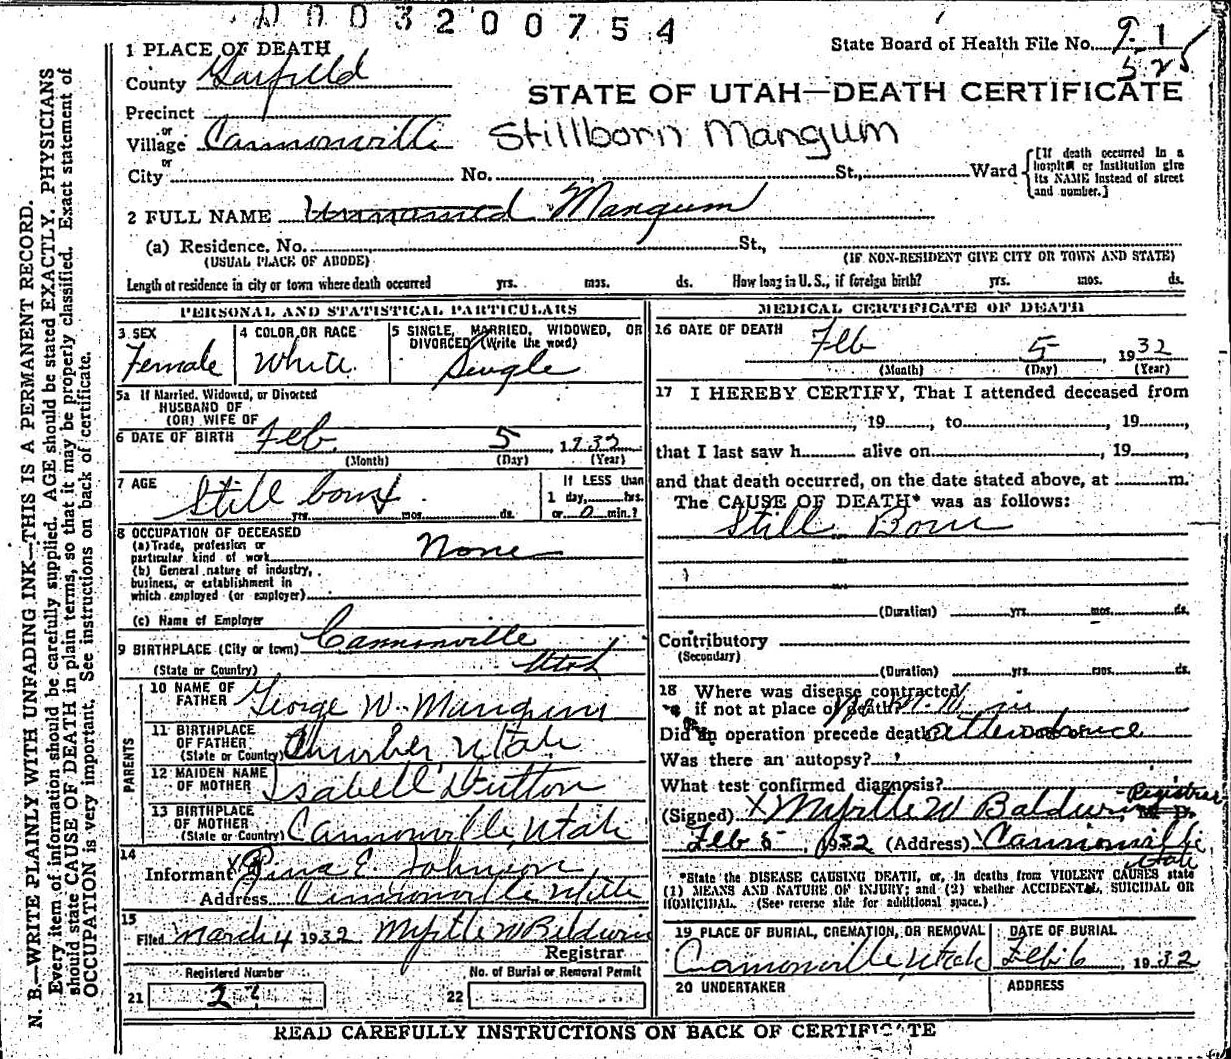 0003200754
State Board of Health File No. 9-1
525
1 PLACE OF DEATH
County Garfield
STATE OF UTAH—DEATH CERTIFICATE
Precinct
or
Village Cannonville Stillborn Mangum
or
City No. St., Ward [If death occurred in a hospital or Institution give its NAME instead of street and number.]
2 FULL NAME Unnamed Mangum
(a) Residence. No. St.,
(USUAL PLACE OF ABODE) (IF NON-RESIDENT GIVE CITY OR TOWN AND STATE)
Length of residence in city or town where death occurred yrs. mos. ds. How long in U. S., if foreign birth? yrs. mos. ds.
PERSONAL AND STATISTICAL PARTICULARS
3 SEX
Female
4 COLOR OR RACE
White
5 SINGLE, MARRIED, WIDOWED, OR
DIVORCED (Write the word)
Single
5a If Married, Widowed, or Divorced
HUSBAND OF
(OR) WIFE OF
6 DATE OF BIRTH Feb. 5 1932
(Month) (Day) (Year)
7 AGE
Still born
yrs. mos. ds.
If LESS than
1 day, hrs.
or 0 min.?
8 OCCUPATION OF DECEASED
(a) Trade, profession or
particular kind of work None
(b) General nature of industry,
business, or establishment in
which employed (or employer)
(c) Name of Employer
9 BIRTHPLACE (City or town) Cannonville
(State or Country) Utah
PARENTS
10 NAME OF
FATHER George W. Mangum
11 BIRTHPLACE
OF FATHER
(State or Country) Thurber, Utah
12 MAIDEN NAME
OF MOTHER Isabell Dutton
13 BIRTHPLACE
OF MOTHER
(State or Country) Cannonville, Utah
14
Informant X E. Johnson
Address Cannonville Utah
15
Filed March 4 1932 Myrtle W Baldwin
Registrar
Registered Number
21 27
No. of Burial or Removal Permit
22
MEDICAL CERTIFICATE OF DEATH
16 DATE OF DEATH Feb 5, 1932
(Month) (Day) (Year)
17 I HEREBY CERTIFY, That I attended deceased from
, 19, to, 19,
that I last saw h alive on, 19,
and that death occurred, on the date stated above, at m.
The CAUSE OF DEATH* was as follows:
Still Born
(Duration) yrs. mos. ds.
Contributory
(Secondary)
(Duration) yrs. mos. ds.
18 Where was disease contracted
if not at place of death?
Did an operation precede death? attendance
Was there an autopsy?
What test confirmed diagnosis?
(Signed) X Myrtle W Baldwin, Registrar M. D.
Feb 5, 1932 (Address) Cannonville,
Utah
*State the DISEASE CAUSING DEATH, or, in deaths from VIOLENT CAUSES state
(1) MEANS AND NATURE OF INJURY; and (2) whether ACCIDENTAL, SUICIDAL OR
HOMICIDAL. (See reverse side for additional space.)
19 PLACE OF BURIAL, CREMATION, OR REMOVAL
Cannonville, Utah
DATE OF BURIAL
Feb. 6, 1932
20 UNDERTAKER
ADDRESS
READ CAREFULLY INSTRUCTIONS ON BACK OF CERTIFICATE
N. B.—WRITE PLAINLY WITH UNFADING INK—THIS IS A PERMANENT RECORD.
Every item of information should be carefully supplied. AGE should be stated EXACTLY. PHYSICIANS
should state CAUSE OF DEATH in plain terms, so that it may be properly classified. Exact statement of
OCCUPATION is very important. See instructions on back of certificate.